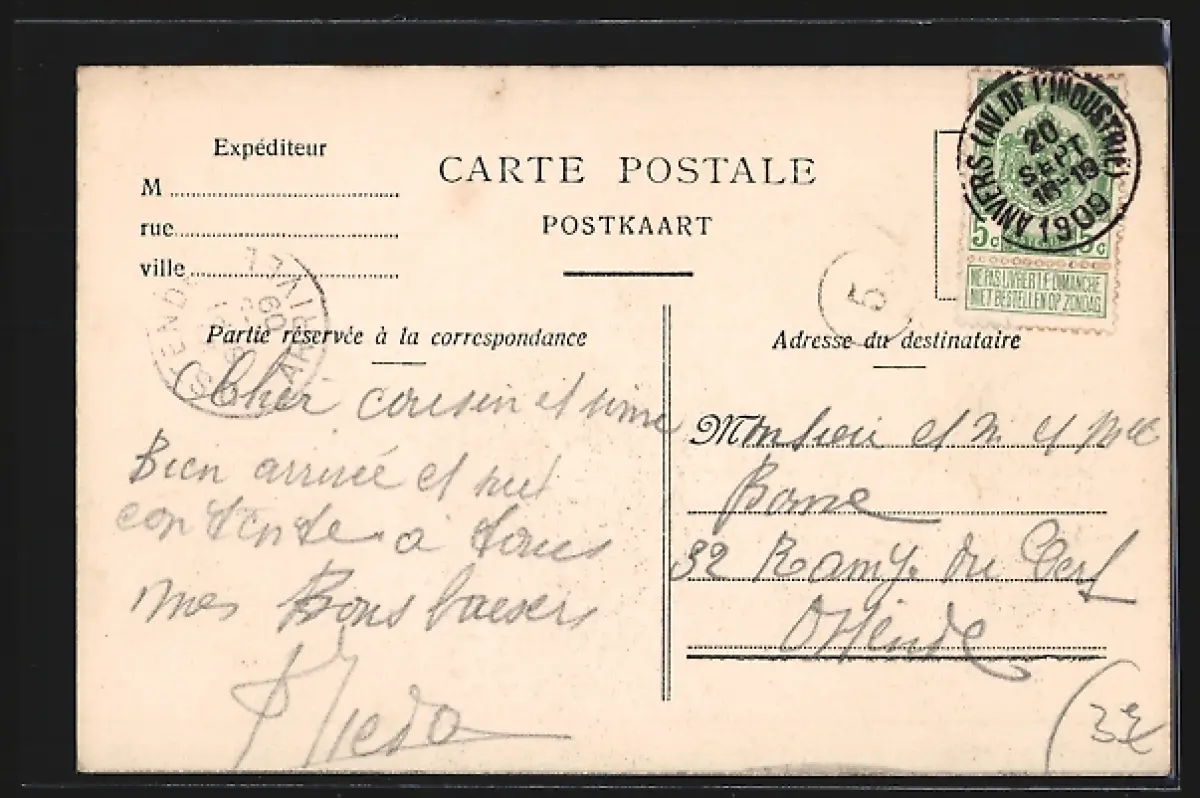 Expéditeur
M
rue
ville
CARTE POSTALE
POSTKAART
ANVERS (AV. DE L'INDUSTRIE)
20
SEPT
18-19
1909
5c 5c
NE PAS LIVRER LE DIMANCHE
NIET BESTELLEN OP ZONDAG
5
Partie réservée à la correspondance
Cher cousin et
Bien arrivée et
contente a tous
mes Bons baesers
Adresse du destinataire
Monsieur et
32 Ramp. du Cerf
Ostende